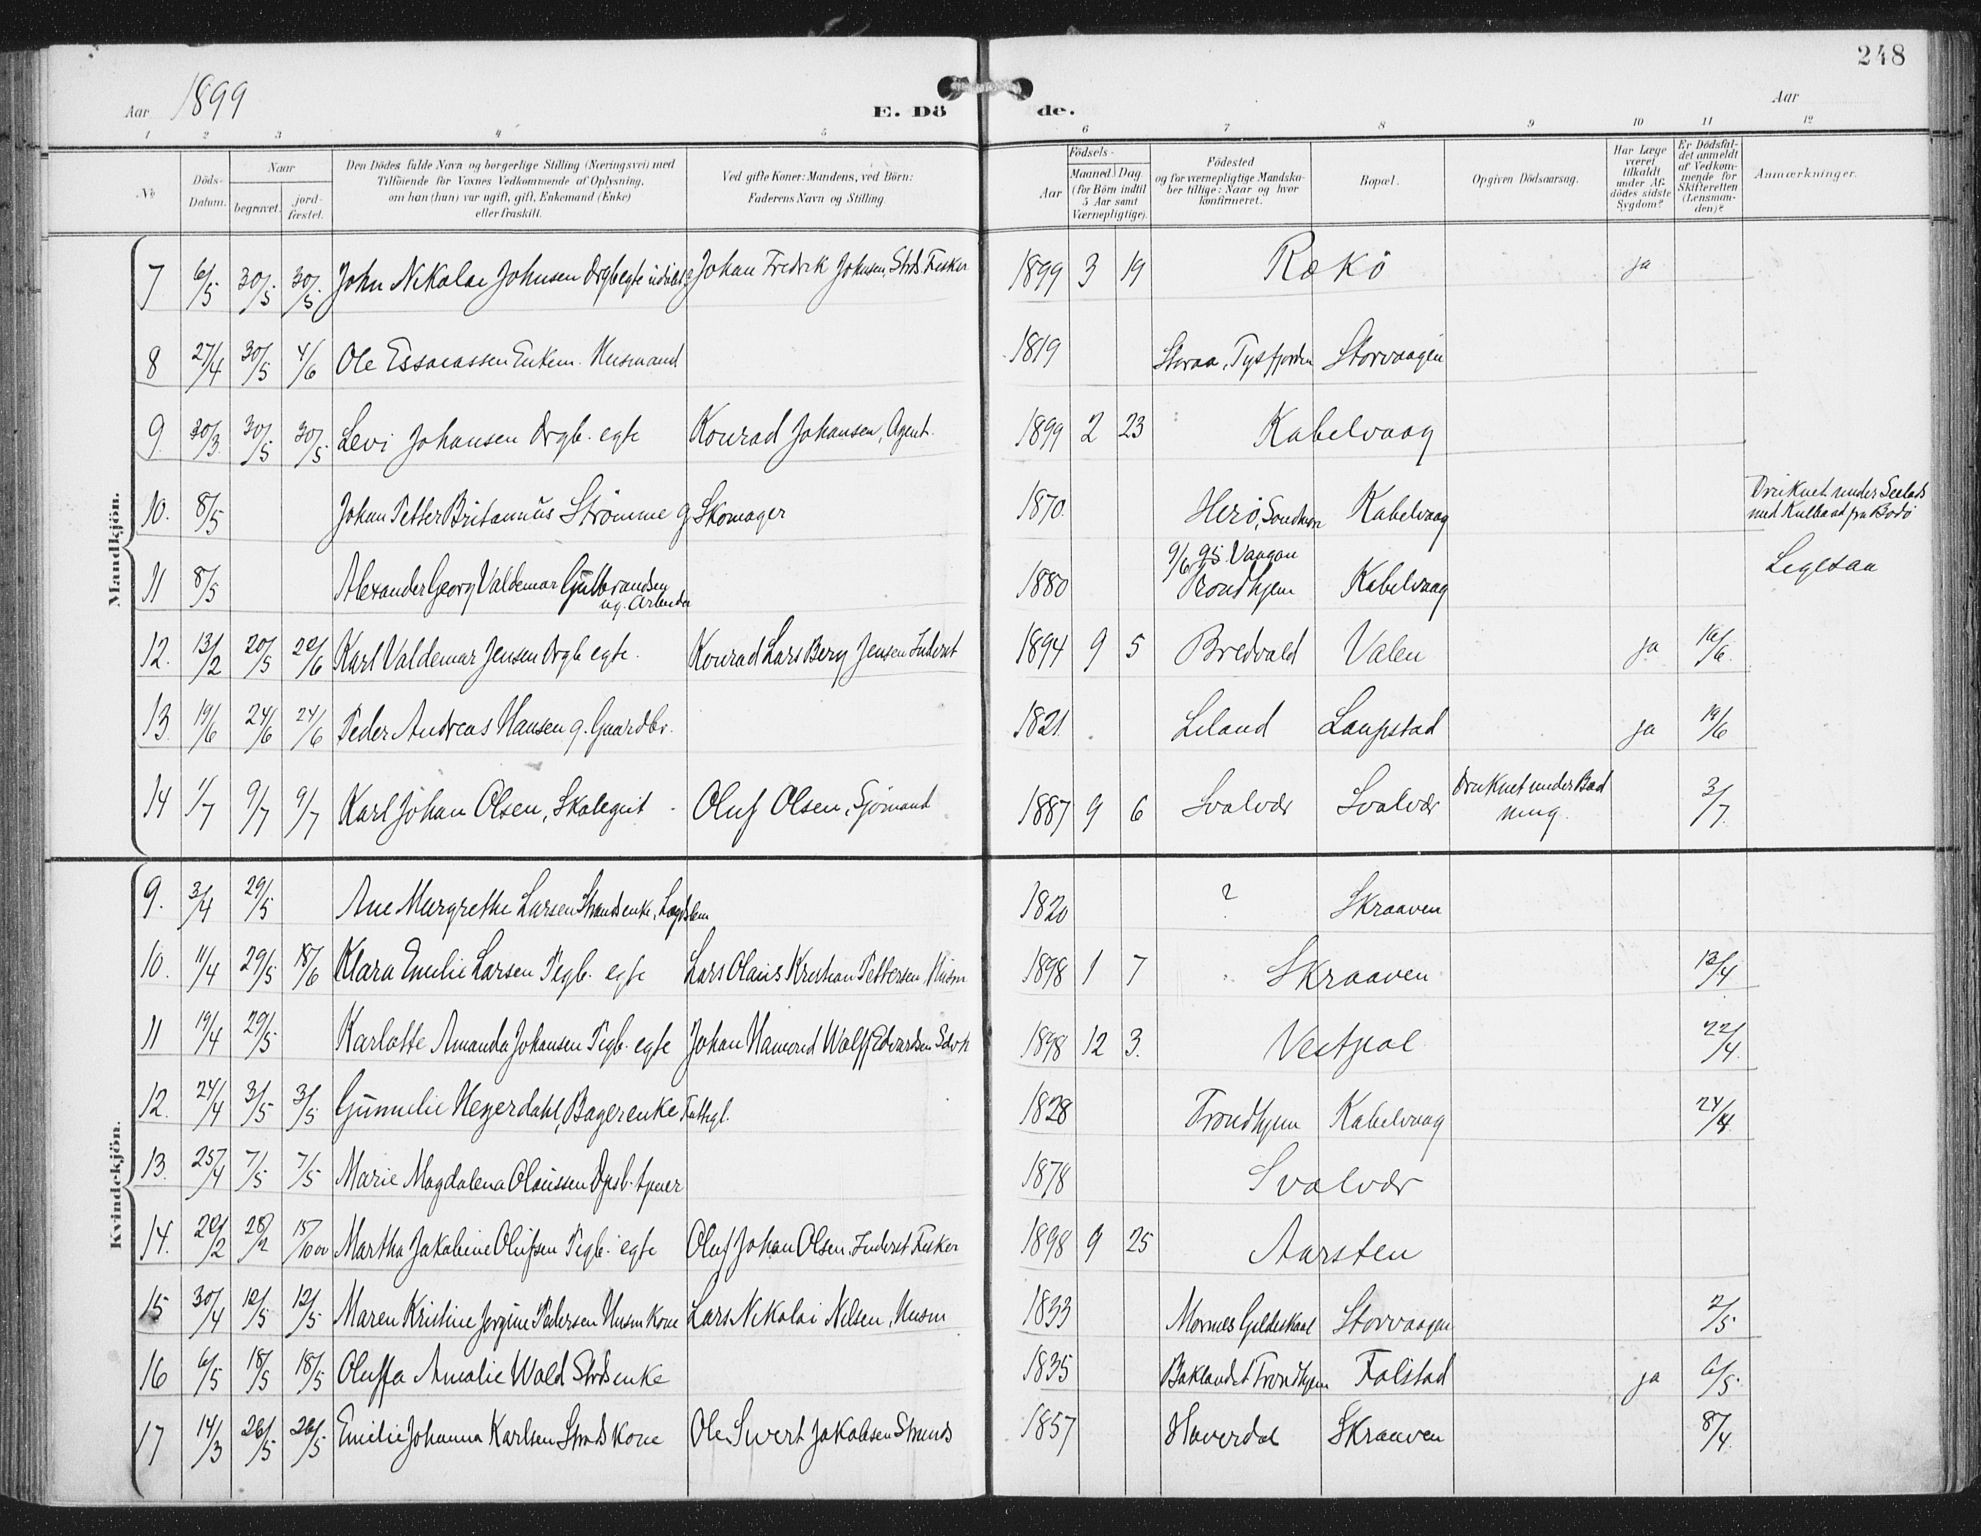 248
Aar 1899
E. Dö de.
Aar
1 2 3 4 5 6 7 8 9 10 11 12
No
Döds-Datum.
Naar
begravet.
jord-fæstet.
Den Dödes fulde Navn og borgerlige Stilling (Næringsvei) med
Tilföiende for Voxnes Vedkommende af Oplysning,
om han (hun) var ugift, gift, Enkemand (Enke)
eller fraskilt.
Ved gifte Koner: Mandens, ved Börn:
Faderens Navn og Stilling
Födsels-
Aar
Maaned. Dag.
(for Börn indtil
5 Aar samt
Værnepligtige).
Födested
og for værnepligtige Mandska-
ber tillige: Naar og hvor
konfirmeret.
Bopæl.
Opgiven Dödsaarsag.
Har Læge
været
tilkaldt
under Af-
dödes sidste
Sygdom?
Er Dödsfal-
det anmeldt
af Vedkom-
mende for
Skifteretten
(Lensman-
den)?
Anmærkninger.
Mandkjön.
7 6/5 30/5 30/5 John Nikolai Johnsen Drgb egte Johan Fredrik Johnsen, Strds. Fisker 1899 3 19 Rækö ja
8 27/4 30/5 4/6 Ole Essaiassen Enkem. Husmand 1819 Storaa, Tysfjorden Storvaagen
9. 30/3 30/5 30/5 Levi Johansen Drgb. egte Konrad Johansen, Agent. 1899 2 23 Kabelvaag
10. 8/5 Johan Petter Britannus Strömme g. Skomager 1870. Herö, Kabelvaag Druknet under Seilads
med fra Bodö
11 8/5 Alexander Georg Valdemar Gulbrandsen
ug. Arbeider 1880 9/6 95 Vaagan
Trondhjem Kabelvaag
12. 13/2 20/5 Karl Valdemar Jensen Drgb egte. Konrad Lars Berg Jensen Inderst 1894 9 5 Bredvald Valen ja 16/6.
13. 19/6 24/6 24/6 Peder Andreas Hansen g. Gaardbr. 1821. Liland Laupstad ja 19/6
14 1/7 9/7 9/7 Karl Johan Olsen, Skolegut Oluf Olsen, Sjömand 1887 9 6 Svolvær Svolvær Druknet under Bad
ning. 3/7.
Kvindekjön.
9. 3/4 29/5 Ane Margrethe Larsen 1820 ? Skraaven
10. 11/4 29/5 18/6 Klara Emilie Larsen Pigb. egte Lars Olaus Kristian Pettersen, Husm 1898 1 7 Skraaven 13/4
11 19/4 29/5 Karlotte Amanda Johansen Pigb. egte Johan Hamond Wolff Edvardsen 1898 12 3. Vestpol 22/4.
12. 24/4 3/5 3/5 Gunnelie Heyerdahl, Bagerenke Fattigl. 1828 Trondhjem Kabelvaag 24/4
13. 25/4 7/5 7/5 Marie Magdalena Olaussen 1878 Svolvær
14. 20/2 28/2 15/10 00 Martha Jakobine Olufsen Pigb. egte Oluf Johan Olsen. Inderst Fisker 1898 9 25 Aarsten
15 30/4 12/5 12/5 Maren Kristine Jorgine Pedersen Husm kone Lars Nikolai Nilsen, Husm 1833 Gildeskaal Storvaagen 2/5
16 6/5 18/5 18/5 Oluffa Amalie Wold Strdsenke 1835 Baklandet Trondhjem Folstad ja 6/5.
17 14/3 26/5 26/5 Emilie Johanna Karlsen Strds kone Ole Sivert Jakobsen Strands 1857 Haverdal Skraaven 8/4.